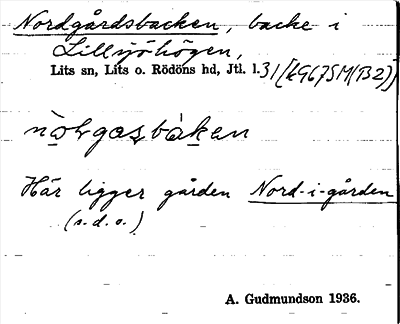 Nordgårdsbacken, backe i
Lillsjöhögen,
Lits sn, Lits o. Rödöns hd, Jtl. l.31
Här ligger gården Nord-i-gården
(s.d.o.)
A. Gudmundson 1936.